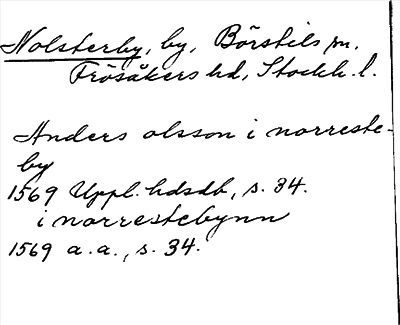 Nolsterby, by, Börstils sn.
Frösåkers hd, Stockh. l.
Anders olsson i norreste-
by
1569 Uppl. hdsdb, s. 34.
i norrestebynn
1569 a. a., s. 34.